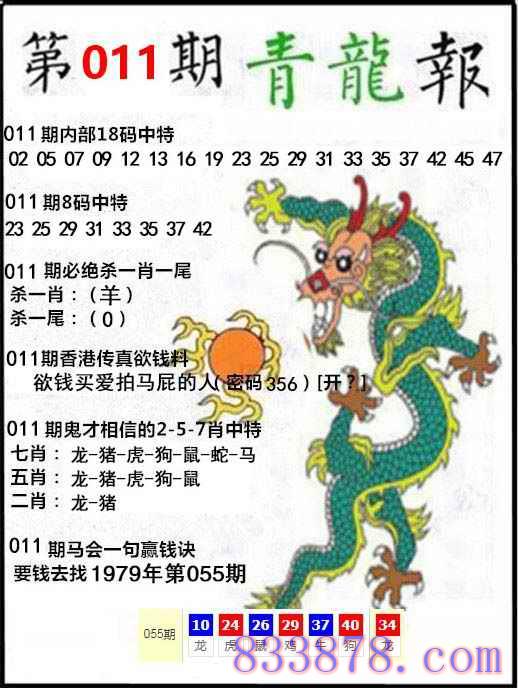 第011期青龍報
011期内部18码中特
02 05 07 09 12 13 16 19 23 25 29 31 33 35 37 42 45 47
011期8码中特
23 25 29 31 33 35 37 42
011期必绝杀一肖一尾
杀一肖：（羊）
杀一尾：（0）
011期香港传真欲钱料
欲钱买爱拍马屁的人(密码356）[开？]
011期鬼才相信的2-5-7肖中特
七肖：龙-猪-虎-狗-鼠-蛇-马
五肖：龙-猪-虎-狗-鼠
二肖：龙-猪
011期马会一句赢钱诀
要钱去找1979年第055期
055期 10 24 26 29 37 40 34
龙 虎 鼠 鸡 牛 狗 龙
833878.com